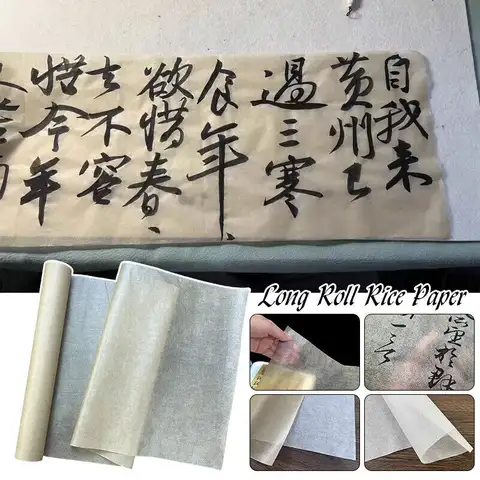 自我来
黄州已
過三寒
食年、
欲惜春、
去不容
惜今年
Long Roll Rice Paper